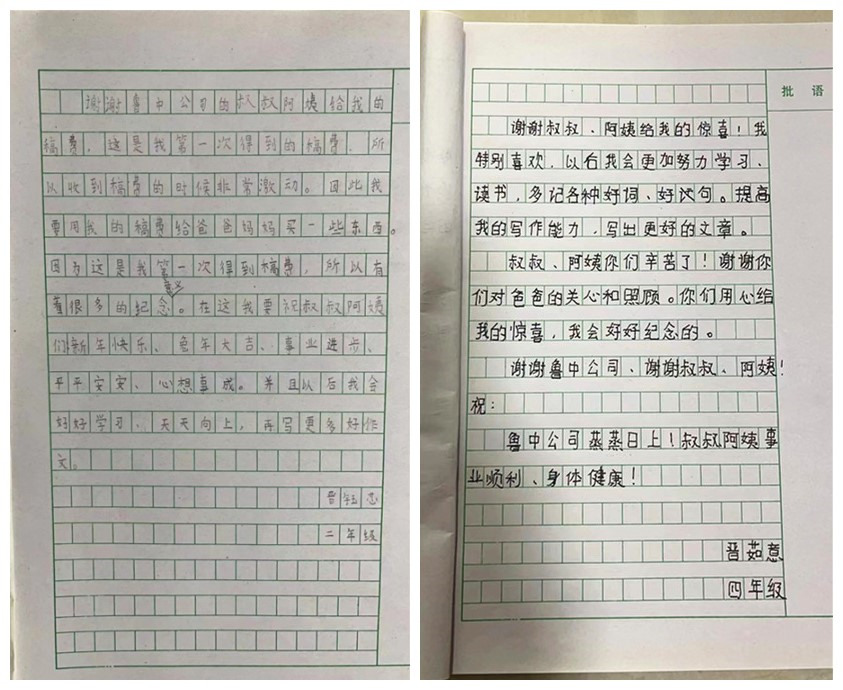 谢谢鲁中公司的叔叔阿姨给我的
稿费，这是我第一次得到的稿费，所
以收到稿费的时候非常激动。因此我
要用我的稿费给爸爸妈妈买一些东西。
因为这是我第一次得到稿费，所以有
着很多的纪念。在这我要祝叔叔阿姨
意义
们新年快乐、兔年大吉、事业进步、
平平安安、心想事成。并且以后我会
好好学习、天天向上，再写更多好作
文。
晋
二年级
批语
谢谢叔叔、阿姨给我的惊喜！我
特别喜欢，以后我会更加努力学习、
读书，多记各种好词、好沙句。提高
我的写作能力，写出更好的文章。
叔叔、阿姨你们辛苦了！谢谢你
们对爸爸的关心和照顾。你们用心给
我的惊喜，我会好好纪念的。
谢谢鲁中公司、谢谢叔叔、阿姨！
祝：
鲁中公司蒸蒸日上！叔叔阿姨事
业顺利、身体健康！
晋茹意
四年级